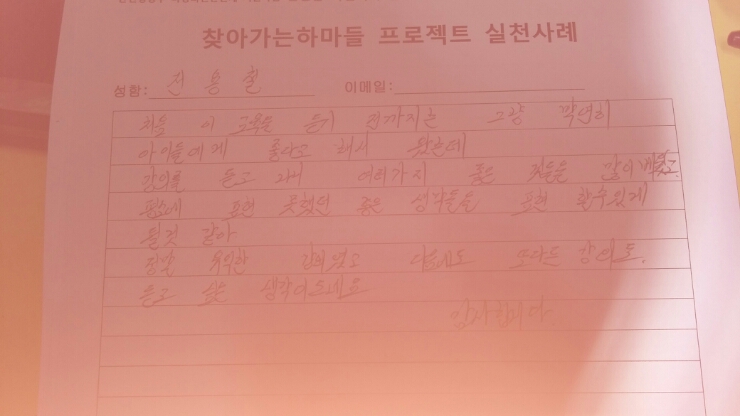 찾아가는하마들 프로젝트 실천사례
성함: 전용철 이메일:
처음 이 교육을 듣기 전까지는 그냥 막연히
아이들에게 좋다고 해서 왔는데
강의를 듣고 나니 여러가지 좋은 것들을 많이 배웠고
평소에 표현 못했던 좋은 생각들을 표현 할수있게
될것 같아
정말 유익한 강의였고 다음에도 또다른 강의도
듣고 싶은 생각이드네요
감사합니다.